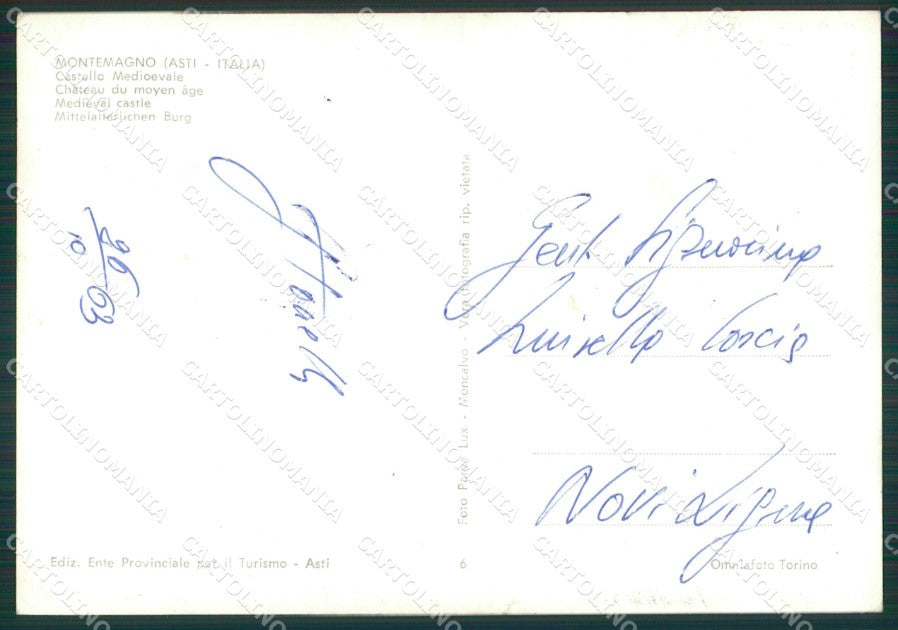 MONTEMAGNO (ASTI - ITALIA)
Castello Medioevale
Château du moyen âge
Medieval castle
Mittelalterlichen Burg
26/10 63
Foto Parvé Lux - Moncalvo - Vera fotografia rip. vietata
Gent. Signorina
Luisella Coscia
Novi Ligure
Ediz. Ente Provinciale per il Turismo - Asti
6
Omniafoto Torino
CARTOLINOMANIA